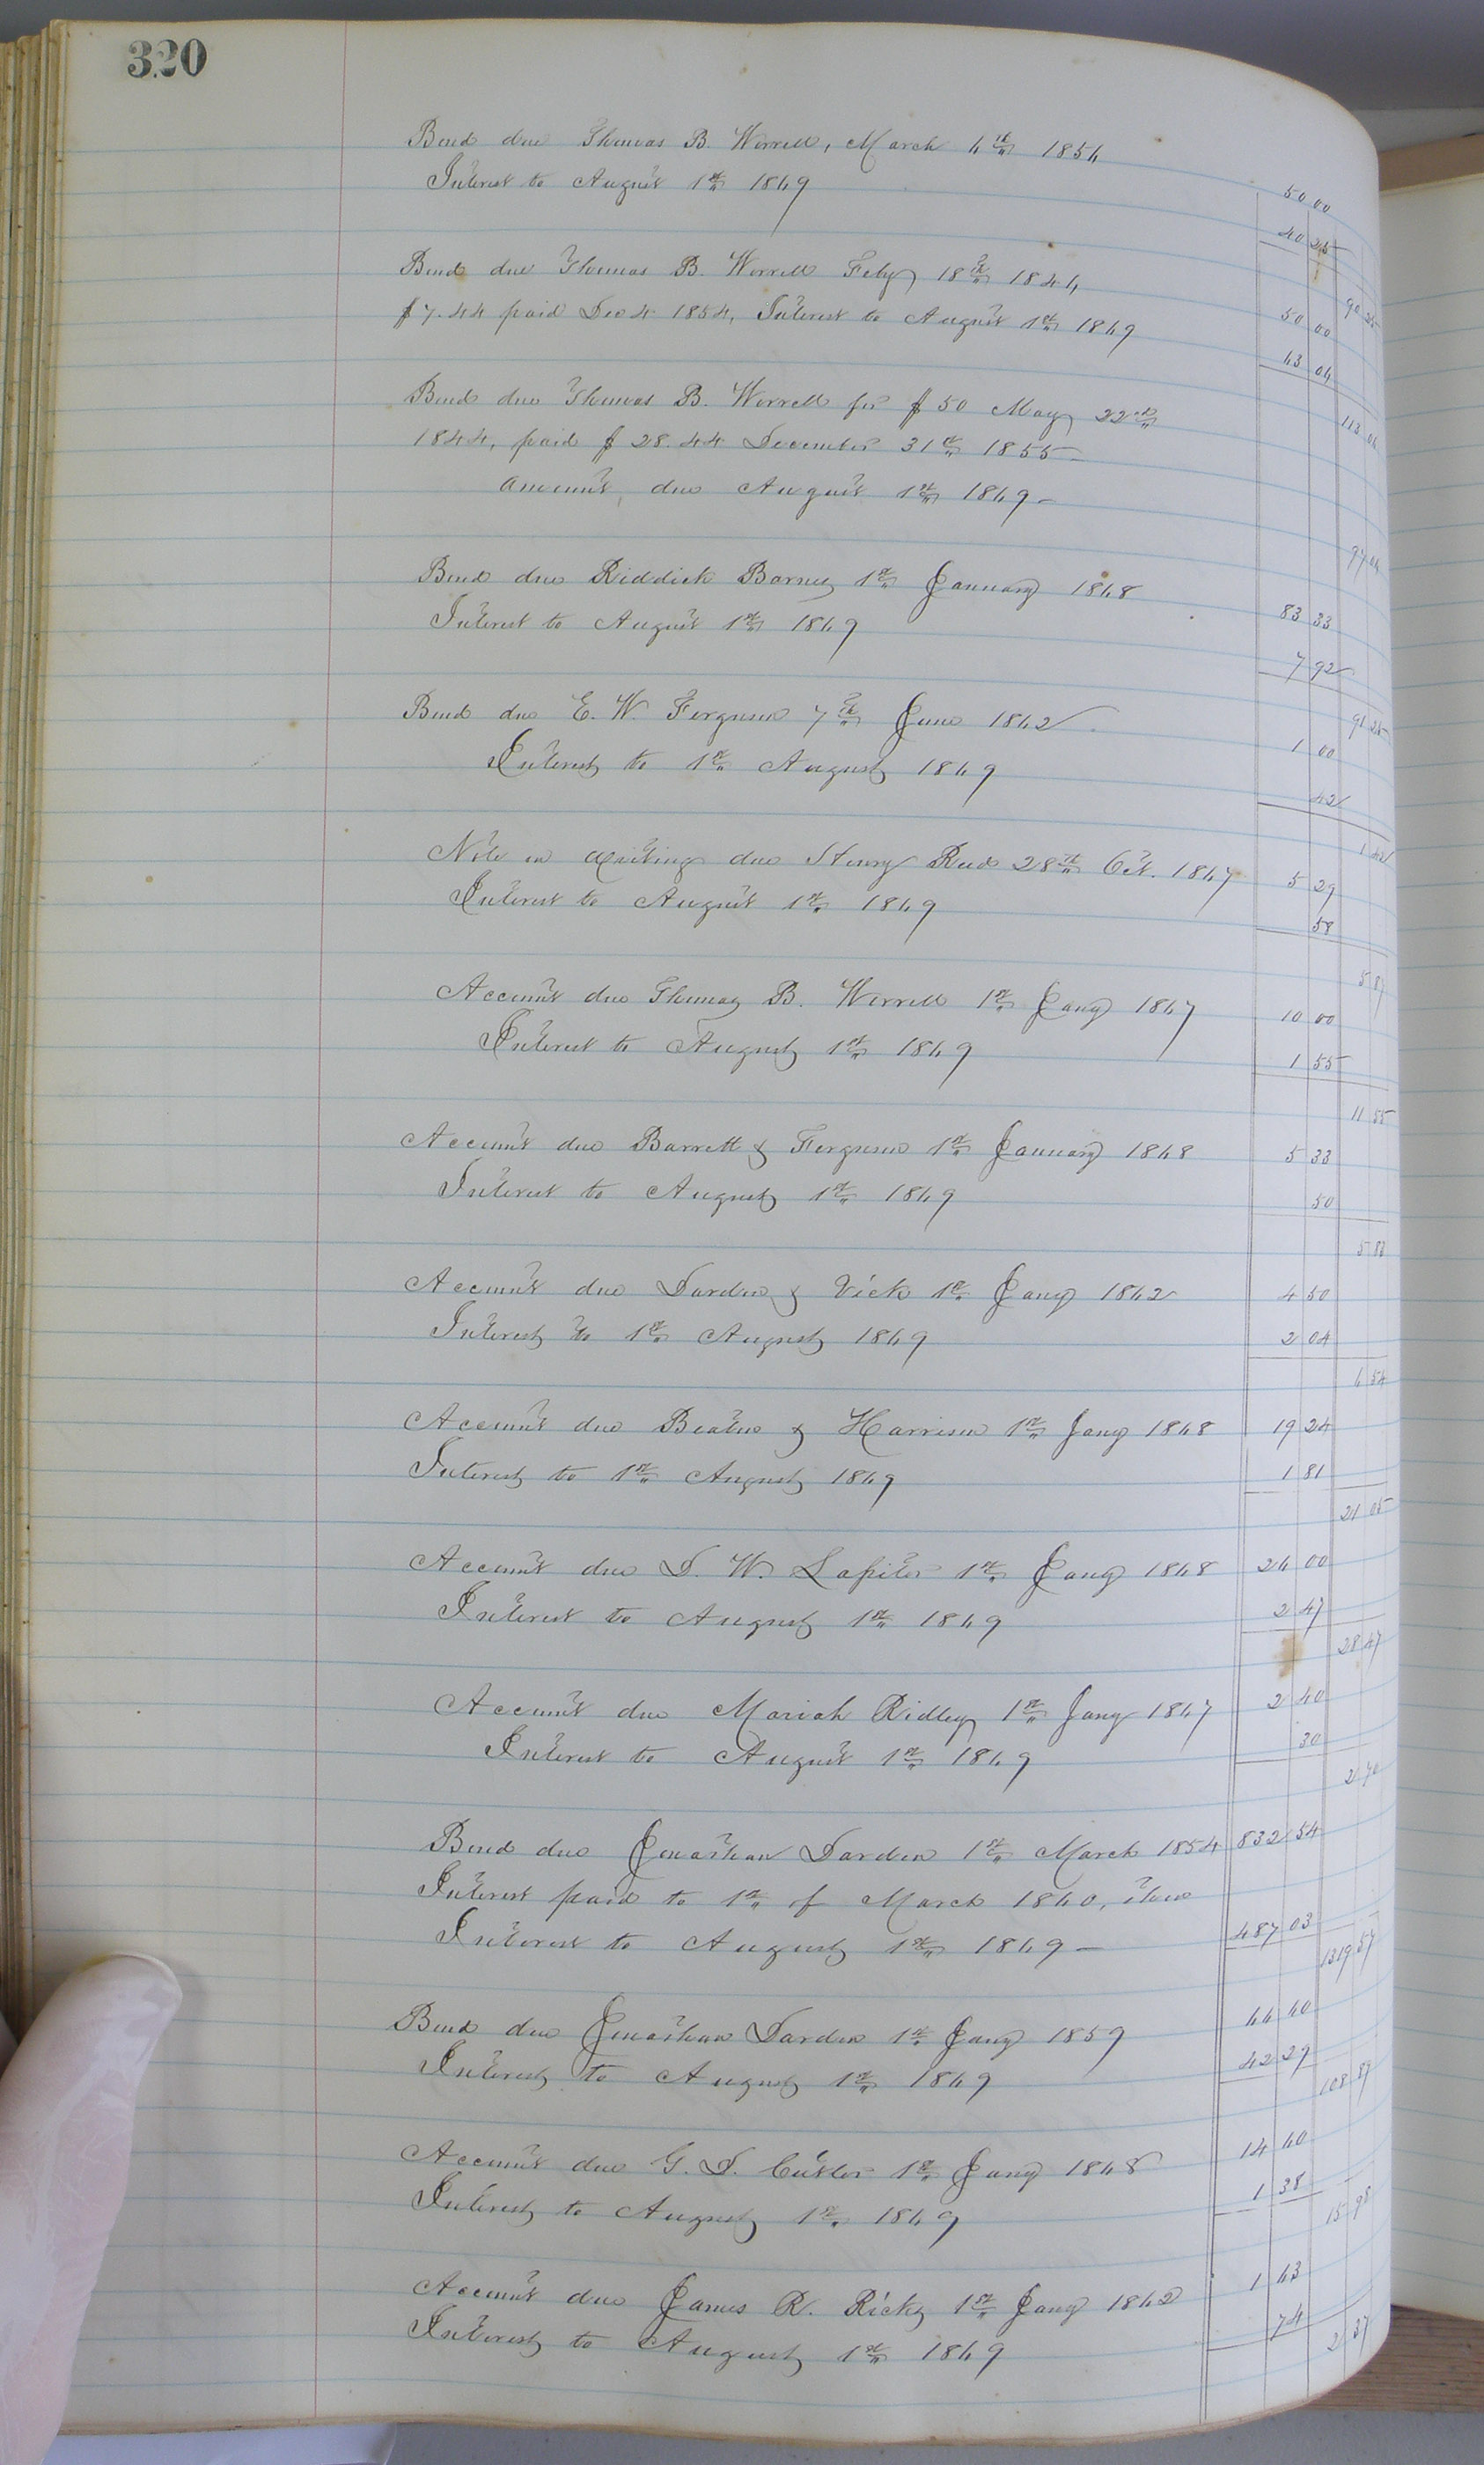 320
Bond due Thomas B. Worrell, March 6th 1856 50 00
Interest to August 1st 1869 40 25
90 25
Bond due Thomas B. Worrell Feby 18th 1846 50 00
$7.44 paid Dec 4 1854, Interest to August 1st 1869 63 06
113 06
Bond due Thomas B. Worrell for $50 May 22nd
1844, paid $28.44 December 31st 1855
amount due August 1st 1869 – 97 06
Bond due Riddick Barnes 1st January 1868 83 33
Interest to August 1st 1869 7 92
91 25
Bond due E. W. Ferguson 7th June 1862 1 00
Interest to 1st August 1869 42
1 42
Note in writing due Henry Reid 28th Oct. 1867 5 29
Interest to August 1st 1869 58
5 87
Account due Thomas B. Worrell 1st Jany 1867 10 00
Interest to August 1st 1869 1 55
11 55
Account due Barrett & Ferguson 1st January 1868 5 33
Interest to August 1st 1869 50
5 83
Account due Darden & Vick 1st Jany 1862 4 50
Interest to 1st August 1869 2 04
6 54
Account due Beaton & Harrison 1st Jany 1868 19 24
Interest to 1st August 1869 1 81
21 05
Account due D. W. Lafiter 1st Jany 1868 26 00
Interest to August 1st 1869 2 47
28 47
Account due Mariah Ridley 1st Jany 1867 2 40
Interest to August 1st 1869 30
2 70
Bond due Jonathan Darden 1st March 1854 832 54
Interest paid to 1st of March 1860, then
Interest to August 1st 1869 – 487 03
1319 57
Bond due Jonathan Darden 1st Jany 1859 66 60
Interest to August 1st 1869 42 29
108 89
Account due G. D. Cutler 1st Jany 1868 14 60
Interest to August 1st 1869 1 38
15 98
Account due James R. Ricks 1st Jany 1862 1 63
Interest to August 1st 1869 74
2 37